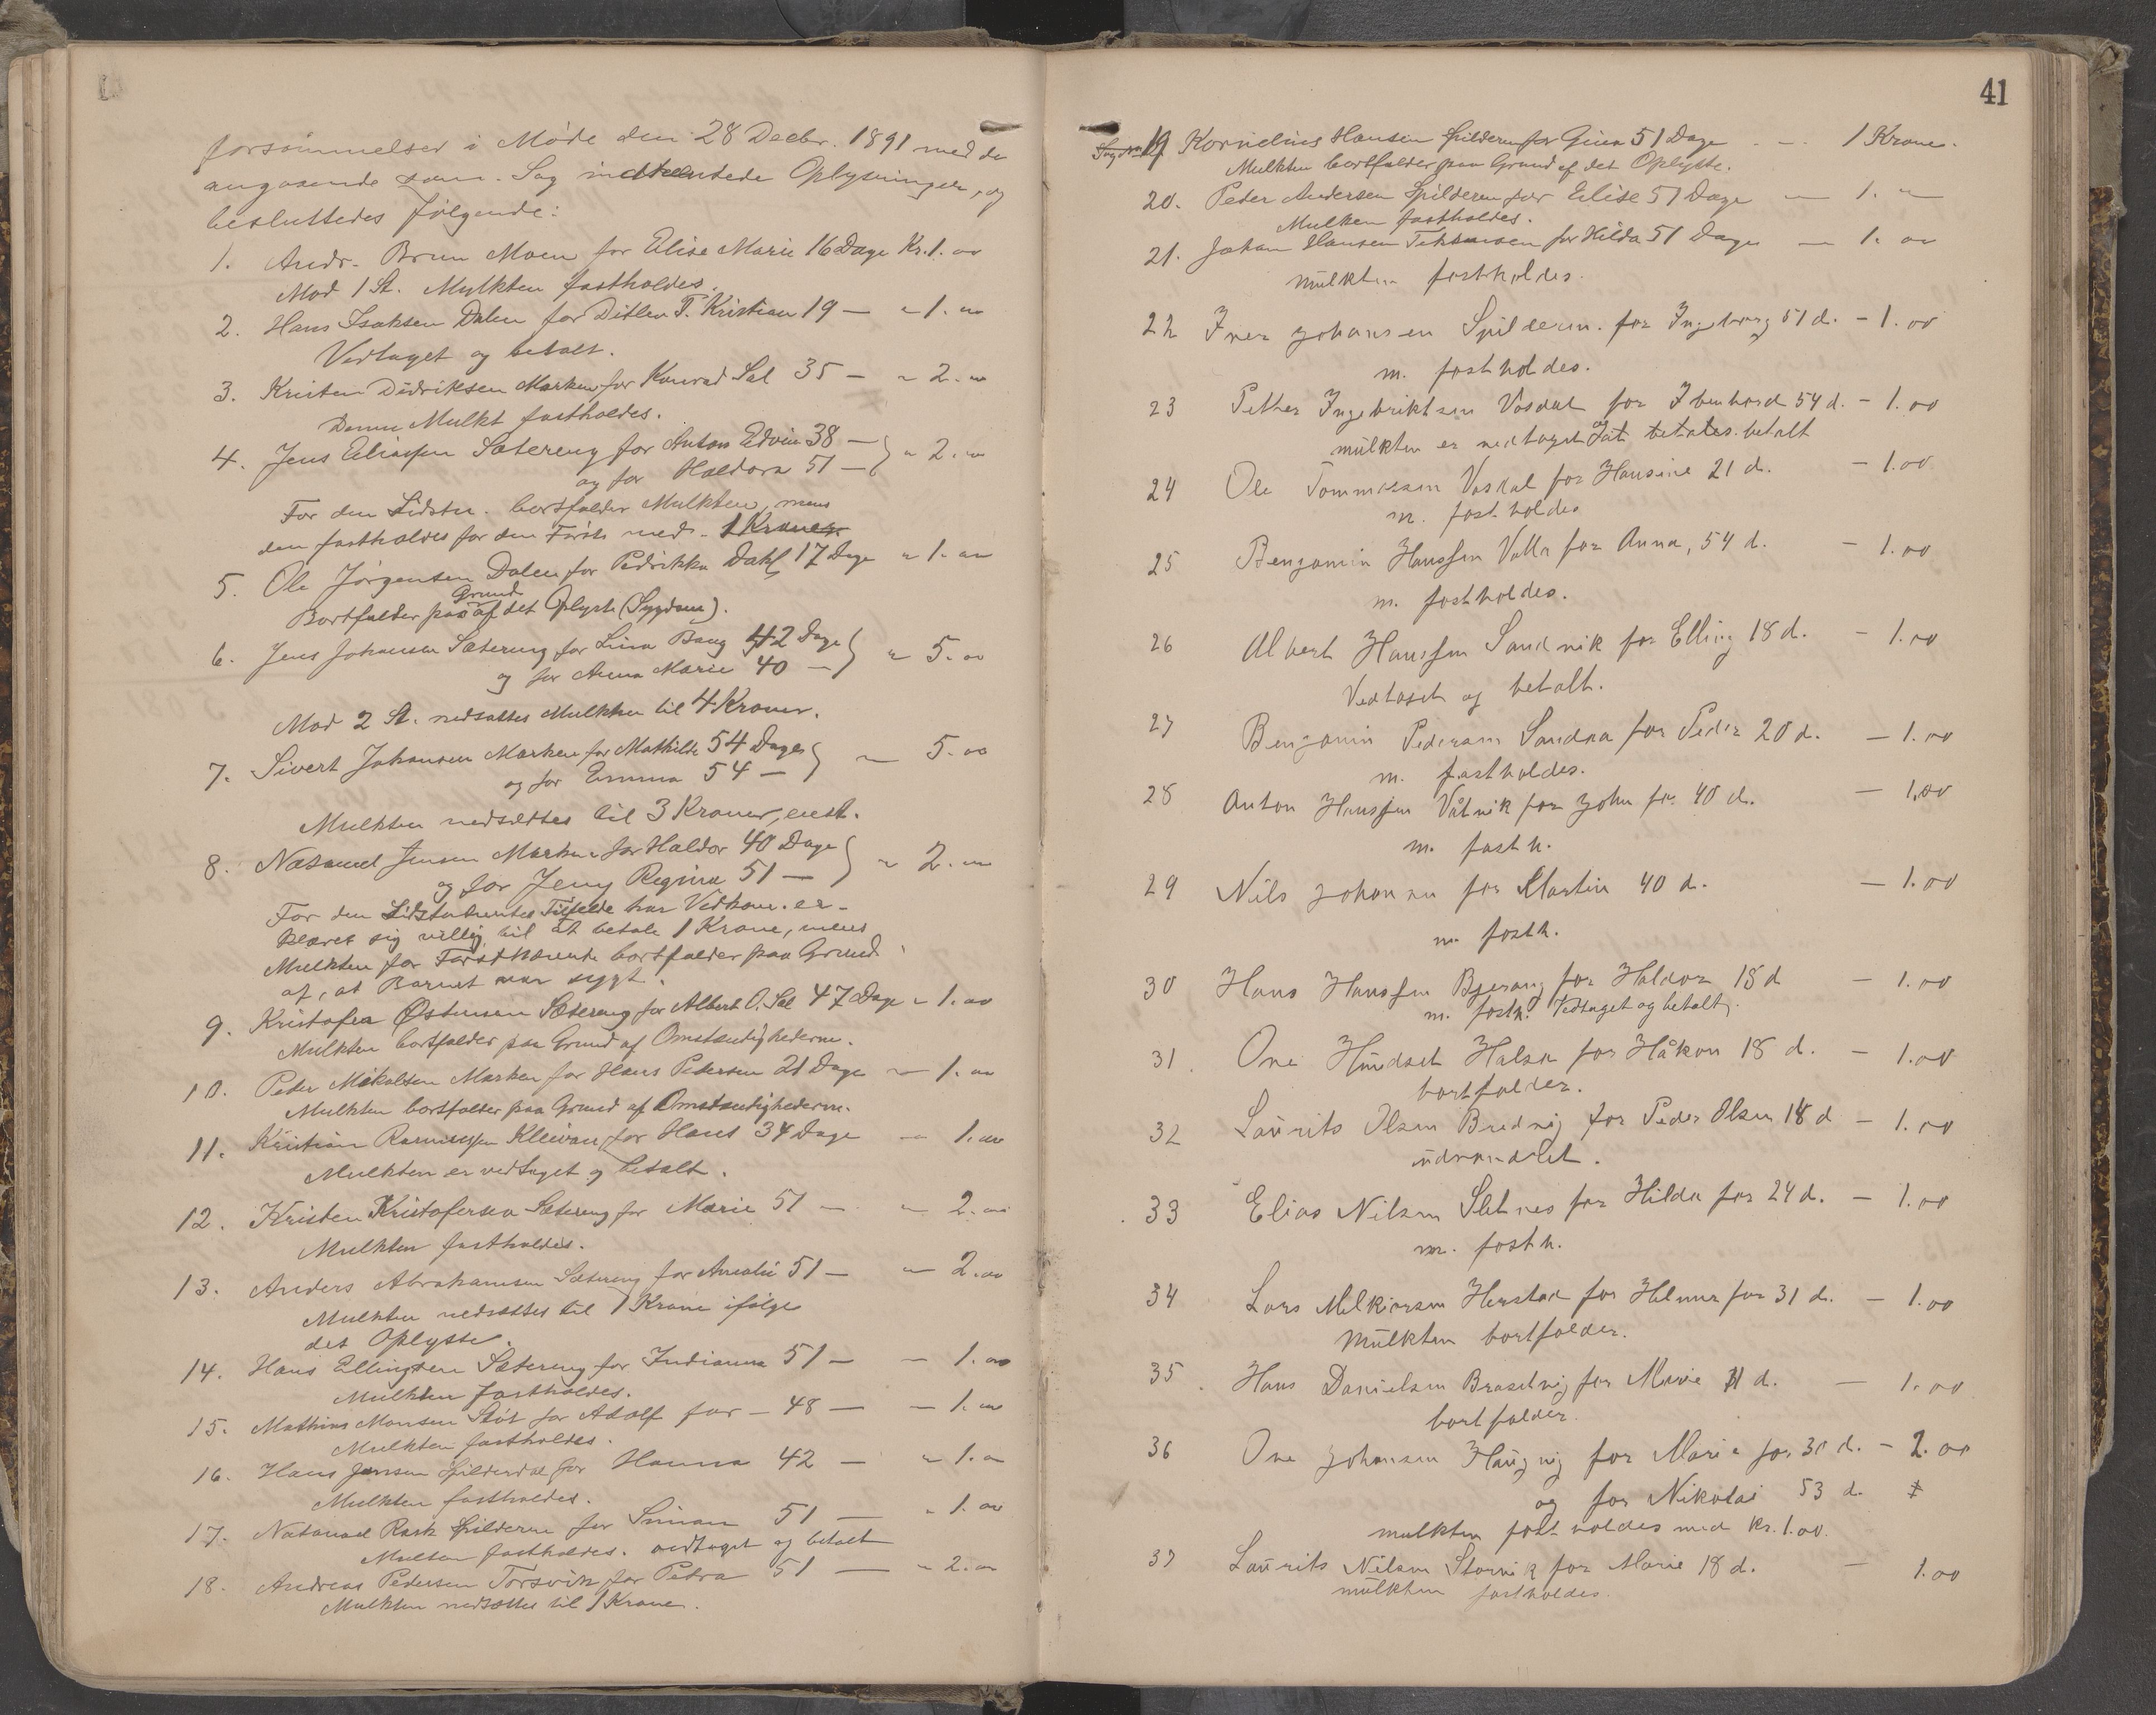 forsømmelser i Møde den 28 Decbr. 1891 med de
angaaende sam. Sag indhentede Oplysninger, og
besluttedes følgende:
1. Andr. Brun Moen for Elise Marie 16 Dage Kr. 1.00
Mod 1 St. Mulkten fastholdes.
2. Hans Isaksen Dalen for Ditlev T. Kristian 19 — " 1.00
Vedtaget og betalt.
3. Kristen Didriksen Marken for Konrad Sal 35 — " 2.00
Denne Mulkt fastholdes.
4. Jens Eliassen Sætereng for Anton Edvin 38 — } " 2.00
og for Haldora 51 —
For den Sidste bortfalder Mulkten, mens
den fastholdes for den Første med 1 Krone
5. Ole Jørgensen Dalen for Pedrikka Dahl 17 Dage " 1.00
Bortfalder paa Grund af det Oplyste (Sygdom).
6. Jens Johansen Sætereng for Lina Bang 42 Dage } " 5.00
og for Anna Marie 40 —
Mod 2 St. nedsattes Mulkten til 4 Kroner.
7. Sivert Johansen Marken for Mathilde 54 Dage } — 5.00
og for Emma 54 —
Mulkten nedsættes til 3 Kroner, enst.
8. Natanael Jensen Marken for Haldor 40 Dage } " 2.00
og for Jeny Regina 51 —
For den Sidstnævntes Tilfælde har Vedkom. er-
klæret sig villig til at betale 1 Krone, mens
Mulkten for Førstnævnte bortfalder paa Grund
af, at Barnet var sygt.
9. Kristofer Østensen Sætereng for Albert O. Sal 47 Dage " 1.00
Mulkten bortfalder paa Grund af Omstændighederne.
10. Peder Mikalsen Marken for Hans Petersen 21 Dage — 1.00
Mulkten bortfalder paa Grund af Omstændighederne.
11. Kristian Rasmussen Kleivan for Hans 34 Dage — 1.00
Mulkten er vedtaget og betalt.
12. Kristen Kristofersen Sætereng for Marie 51 — — 2.00
Mulkten fastholdes.
13. Anders Abrahamsen Sætereng for Amalie 51 — — 2.00
Mulkten nedsættes til 1 Krone ifølge
det Oplyste.
14. Hans Ellingsen Sætereng for Indianna 51 — — 1.00
Mulkten fastholdes.
15. Mathias Monsen Støt for Adolf for — 48 — — 1.00
Mulkten fastholdes.
16. Hans Jensen Spilderdal for Hanna 42 — " 1.00
Mulkten fastholdes.
17. Natanael Rask Spilderen for Simon 51 — " 1.00
Mulkten fastholdes. vedtaget og betalt
18. Andreas Pedersen Torsvik for Petra 51 — " 2.00
Mulkten nedsættes til 1 Krone.
41
19 Kornelius Hansen Spilderen for Gina 51 Dage — 1 Krone.
Mulkten bortfalder paa Grund af det Oplyste.
20. Peder Andersen Spilderen for Elise 51 Dage — 1. "
Mulken fastholdes.
21. Johan Hansen for Hilda 51 Dage — 1.00
mulkten fastholdes.
22 Iver Johansen Spilderen. for Ingeborg 51 d. — 1.00
m. fastholdes.
23 Petter Ingebriktsen Vasdal for Ibenhard 54 d. — 1.00
mulkten er vedtaget og betalt
24 Ole Tommassen Vasdal for Hansine 21 d. — 1.00
m. fastholdes
25 Benjamin Hanssen Valla for Anna, 54 d. — 1.00
m. fastholdes.
26 Albert Hanssen Sandvik for Elling 18 d. — 1.00
Vedtaget og betalt.
27 Benjamin Pedersen Sandaa for Peder 20 d. — 1.00
m. fastholdes.
28 Anton Hanssen Våtvik for John for 40 d. — 1,00
m. fasth.
29 Nils Johansen for Martin 40 d. — 1.00
m. fasth.
30 Hans Hanssen Bjerang for Haldor 18 d — 1.00
m. fasth. Vedtaget og betalt.
31. One Hundset Halsa for Håkon 18 d. — 1.00
bortfalder.
32 Laurits Olsen Bredvig for Peder Olsen 18 d — 1.00
udvandret.
33 Elias Nilsen Sletnes for Hilda for 24 d. — 1.00
m. fasth.
34 Lars Melkiorsen Herstad for Helmer for 31 d. — 1.00
Mulkten bortfalder.
35. Hans Danielsen Brasetvig for Marie 31 d. — 1.00
bortfalder.
36 One Johansen Haugvig for Marie for 30 d. — 2.00
og for Nikolai 53 d.
mulkten fastholdes med Kr. 1.00.
37 Laurits Nilsen Storvik for Marie 18 d. — 1.00
mulkten fastholdes.